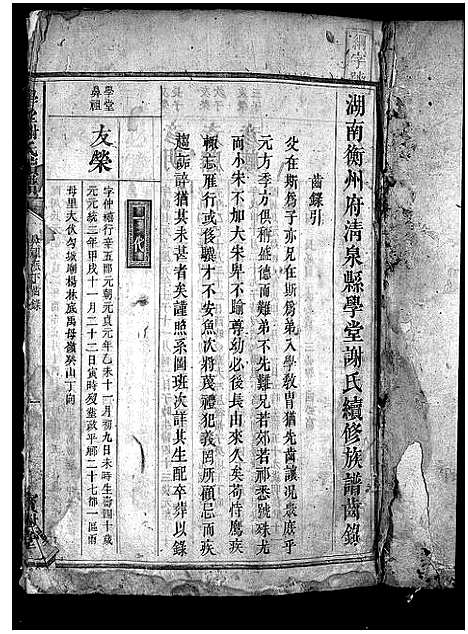 湖南衡州府清泉縣學堂謝氏續修族譜齒錄
齒錄引
父在斯爲子亦兄在斯爲弟入學教冑猶先齒讓況衆庶乎
元方季方俱稱盛德而難弟不先難兄若郊若祁悉號殊尤
而小宋不加大宋卑不踰尊幼必後長由來久矣苟恃鷹疾
輒忘雁行或後驥才不安魚次將蔑禮犯義罔所顧忌而疾
趨詬誶猶其未甚者矣謹照系圖班次詳其生配卒葬以錄
一代
學堂
鼻祖
友榮
字仲禧行辛五郎元朝元貞元年乙未十一月初九日未時生壽四十歲
元元統二年甲戌十一月二十二日寅時歿葬政平鄉二十七都一區雨
母里大伏勾城廟楊林底禹母嶺癸山丁向